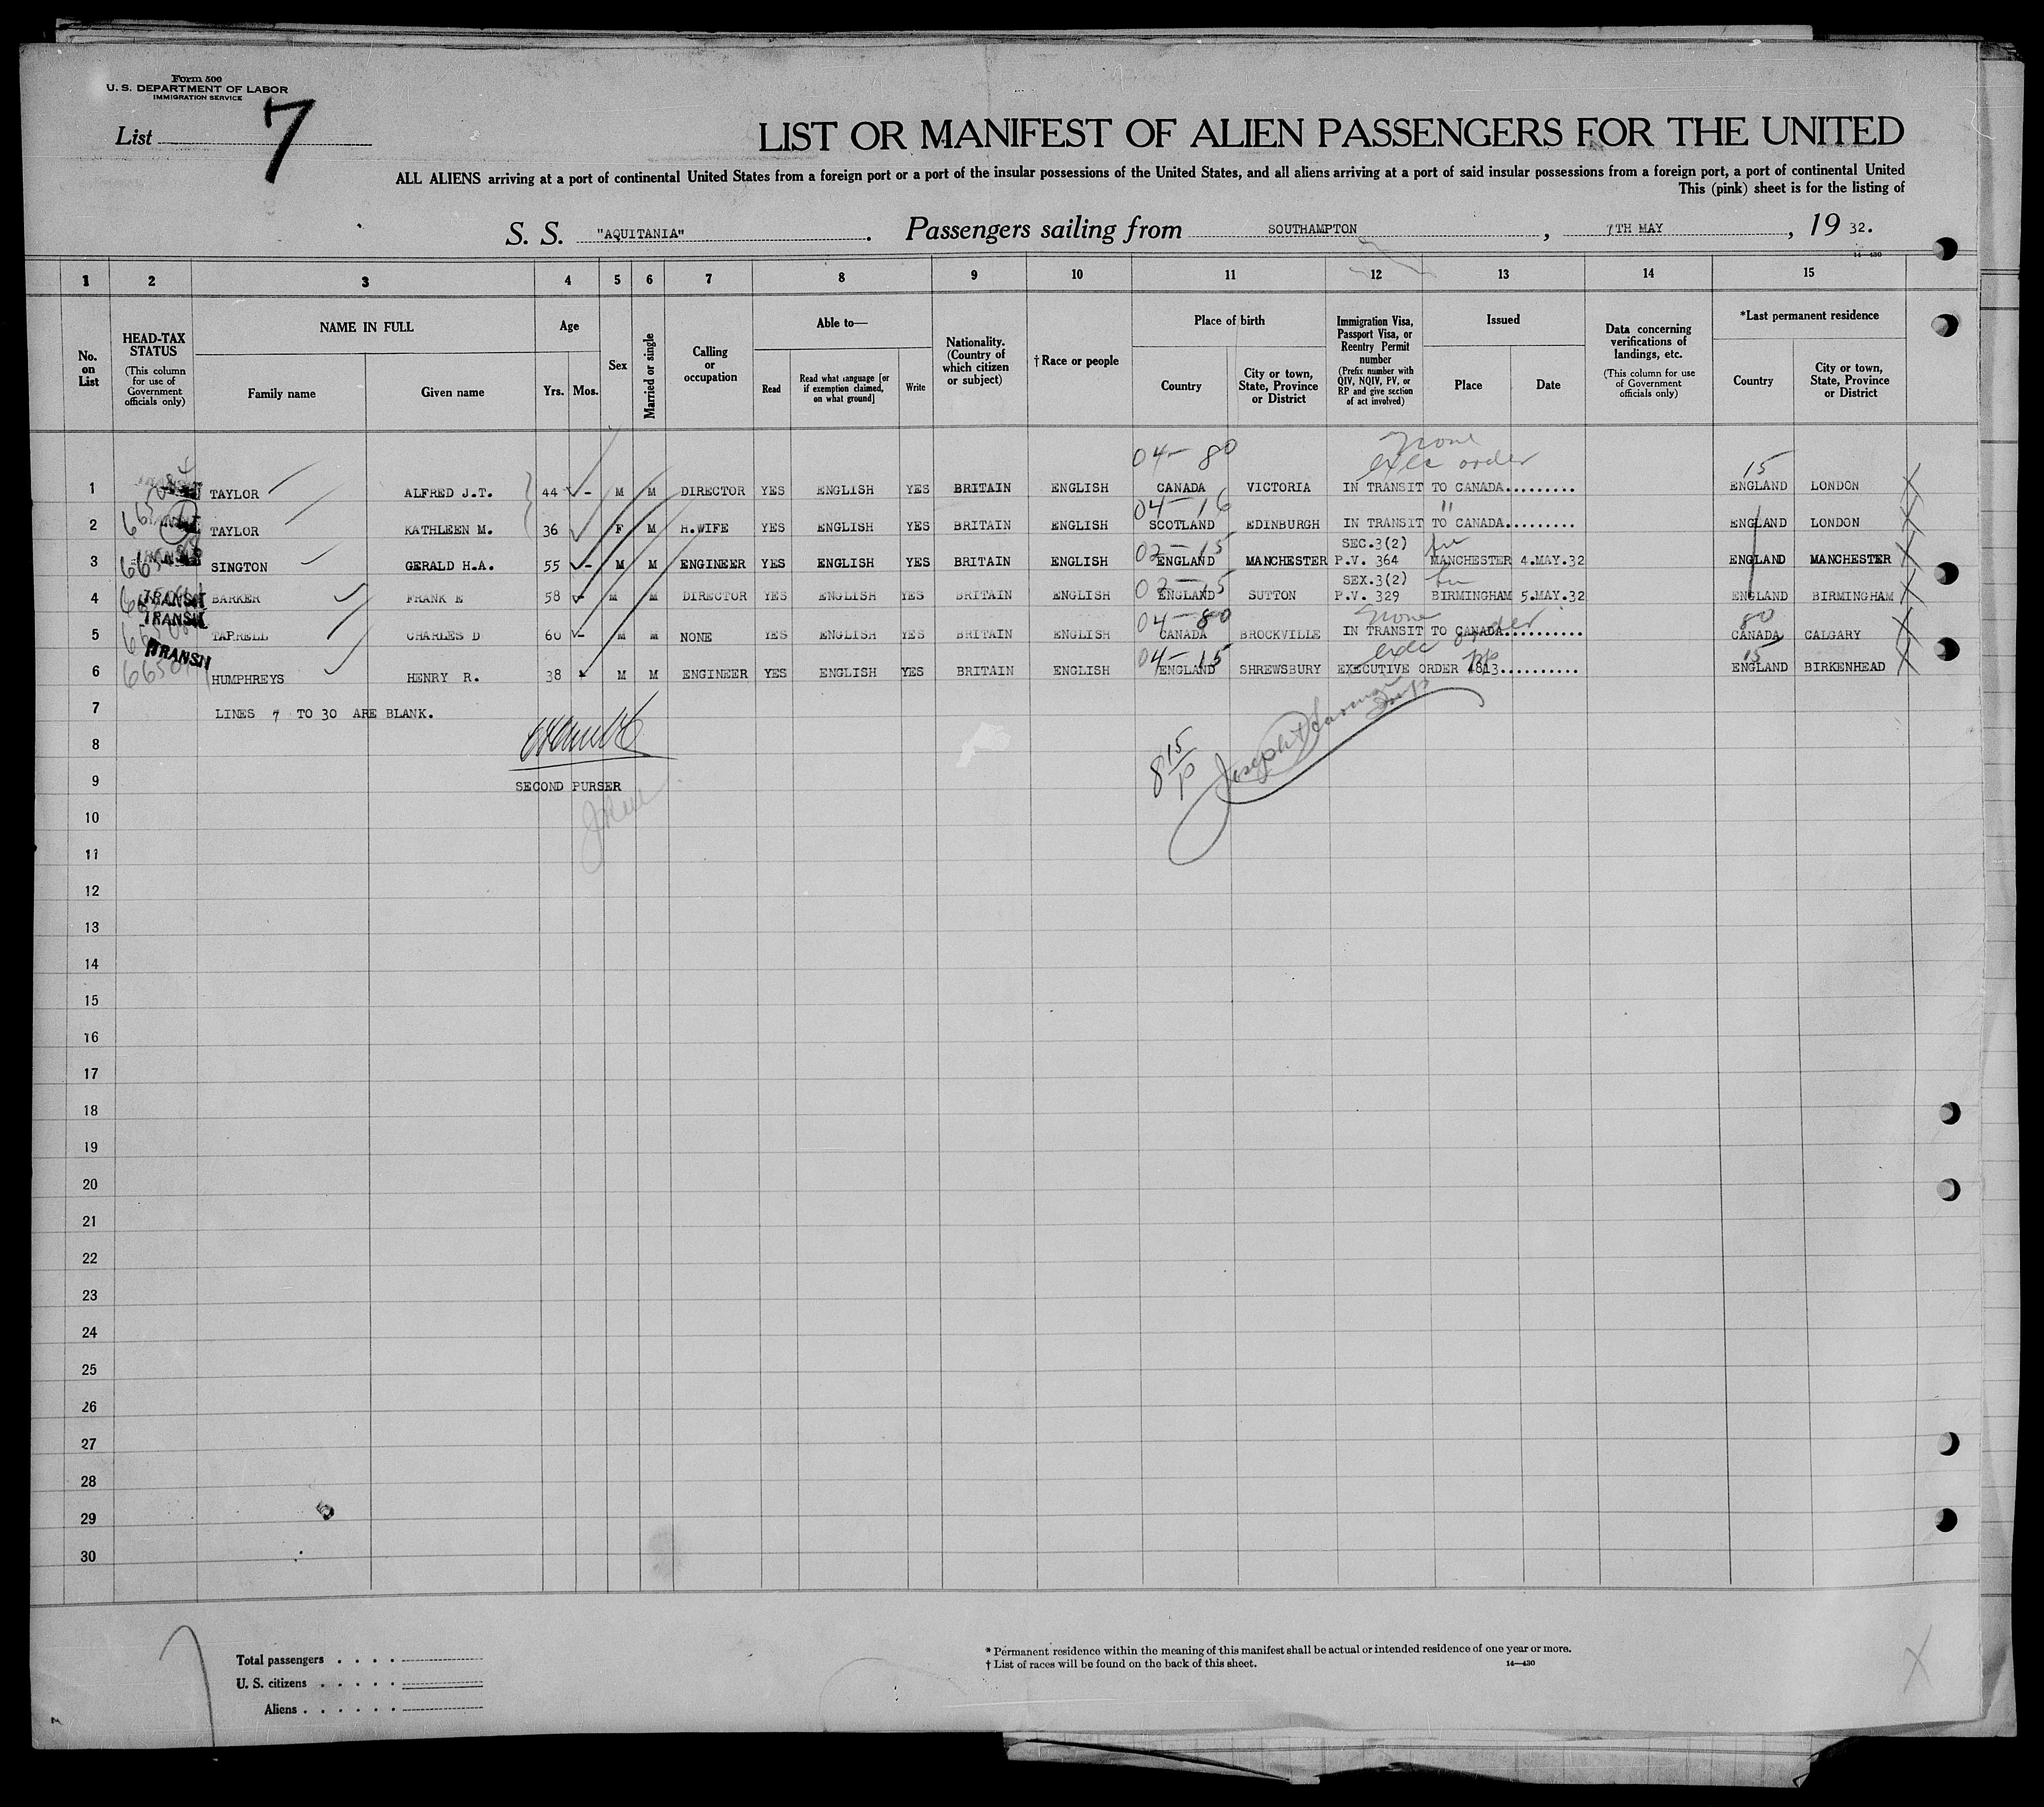 Form 500
U. S. DEPARTMENT OF LABOR
IMMIGRATION SERVICE
List 7
LIST OR MANIFEST OF ALIEN PASSENGERS FOR THE UNITED
ALL ALIENS arriving at a port of continental United States from a foreign port or a port of the insular possessions of the United States, and all aliens arriving at a port of said insular possessions from a foreign port, a port of continental United
This (pink) sheet is for the listing of
S. S. "AQUITANIA" . Passengers sailing from SOUTHAMPTON , 7TH MAY , 19 32.
14—430
1 2 3 4 5 6 7 8 9 10 11 12 13 14 15
No. on List
HEAD-TAX STATUS (This column for use of Government officials only)
NAME IN FULL
Family name
Given name
Age
Yrs. Mos.
Sex
Married or single
Calling or occupation
Able to—
Read
Read what language [or if exemption claimed, on what ground]
Write
Nationality. (Country of which citizen or subject)
† Race or people
Place of birth
Country
City or town, State, Province or District
Immigration Visa, Passport Visa, or Reentry Permit number (Prefix number with QIV, NQIV, PV, or RP and give section of act involved)
Issued
Place
Date
Data concerning verifications of landings, etc. (This column for use of Government officials only)
*Last permanent residence
Country
City or town, State, Province or District
04-80 none
exec order 15
1 TAYLOR ALFRED J.T. 44 - M M DIRECTOR YES ENGLISH YES BRITAIN ENGLISH CANADA VICTORIA IN TRANSIT TO CANADA......... ENGLAND LONDON
04-16 "
2 TAYLOR KATHLEEN M. 36 F M H.WIFE YES ENGLISH YES BRITAIN ENGLISH SCOTLAND EDINBURGH IN TRANSIT TO CANADA......... ENGLAND LONDON
02-15 SEC.3(2)
3 SINGTON GERALD H.A. 55 - M M ENGINEER YES ENGLISH YES BRITAIN ENGLISH ENGLAND MANCHESTER P.V. 364 MANCHESTER 4.MAY.32 ENGLAND MANCHESTER
02-15 SEX.3(2)
4 TRANSIT BARKER FRANK E 58 - M M DIRECTOR YES ENGLISH YES BRITAIN ENGLISH ENGLAND SUTTON P.V. 329 BIRMINGHAM 5.MAY.32 ENGLAND BIRMINGHAM
TRANSIT
04-80 none 80
5 TAPRELL CHARLES D 60 - M M NONE YES ENGLISH YES BRITAIN ENGLISH CANADA BROCKVILLE IN TRANSIT TO CANADA.......... CANADA CALGARY
TRANSIT 04-15 exec order pp 15
6 HUMPHREYS HENRY R. 38 M M ENGINEER YES ENGLISH YES BRITAIN ENGLISH ENGLAND SHREWSBURY EXECUTIVE ORDER 4813.......... ENGLAND BIRKENHEAD
7 LINES 7 TO 30 ARE BLANK.
8
8 15/P
9 SECOND PURSER
10
11
12
13
14
15
16
17
18
19
20
21
22
23
24
25
26
27
28
29
30
Total passengers . . . .
U. S. citizens . . . . .
Aliens . . . . . .
* Permanent residence within the meaning of this manifest shall be actual or intended residence of one year or more.
† List of races will be found on the back of this sheet.
14—430